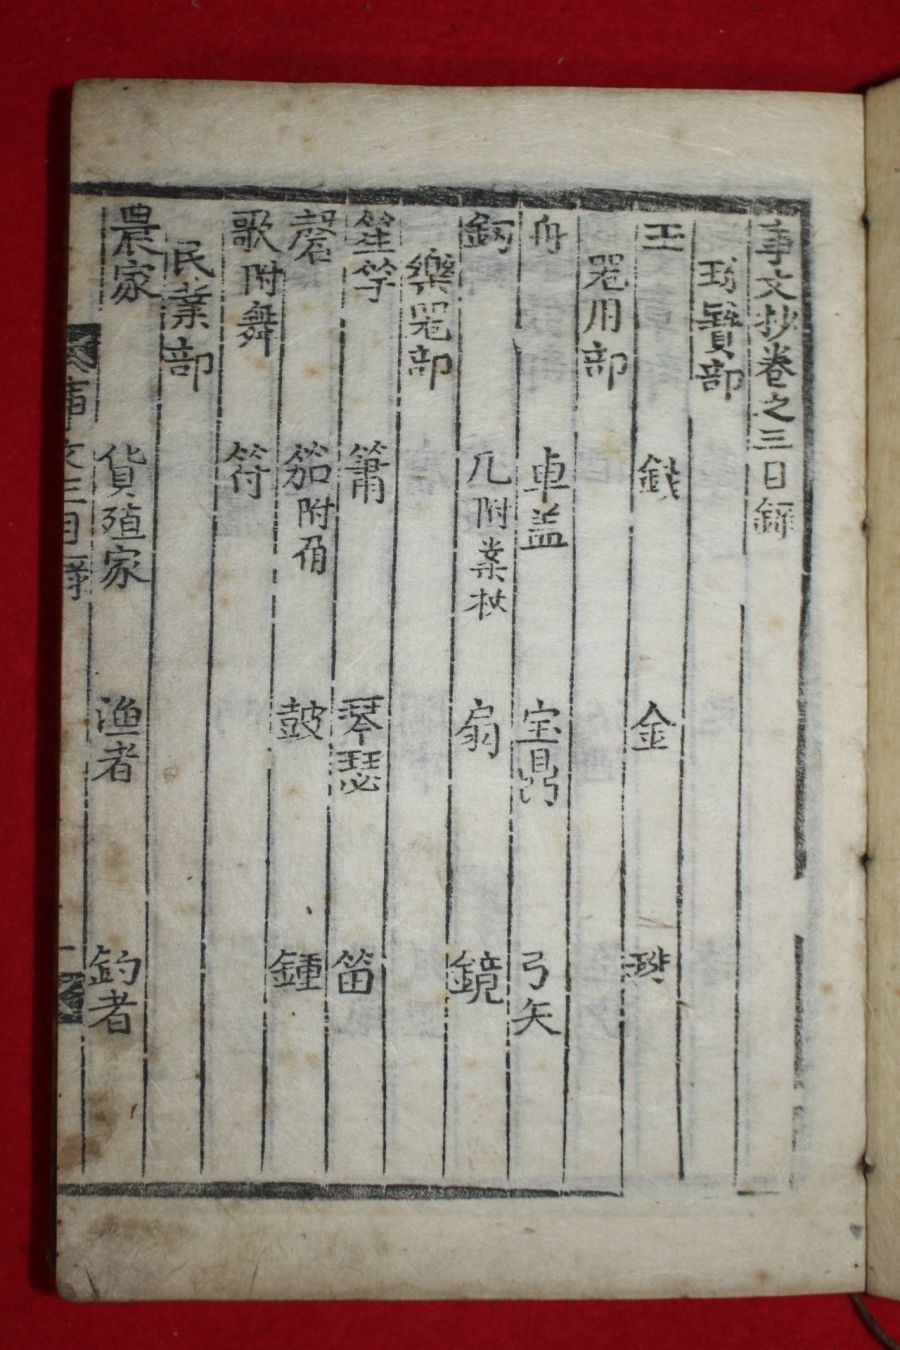 事文抄卷之三目錄
珎寶部
玉 錢 金 珠
器用部
舟 車盖 宝鼎 弓矢
鉤 几附案杖 扇 鏡
樂器部
笙竽 簫 琴瑟 笛
磬 笳附角 鼓 鍾
歌附舞 符
民業部
農家 貨殖家 渔者 釣者
事文三目錄 一